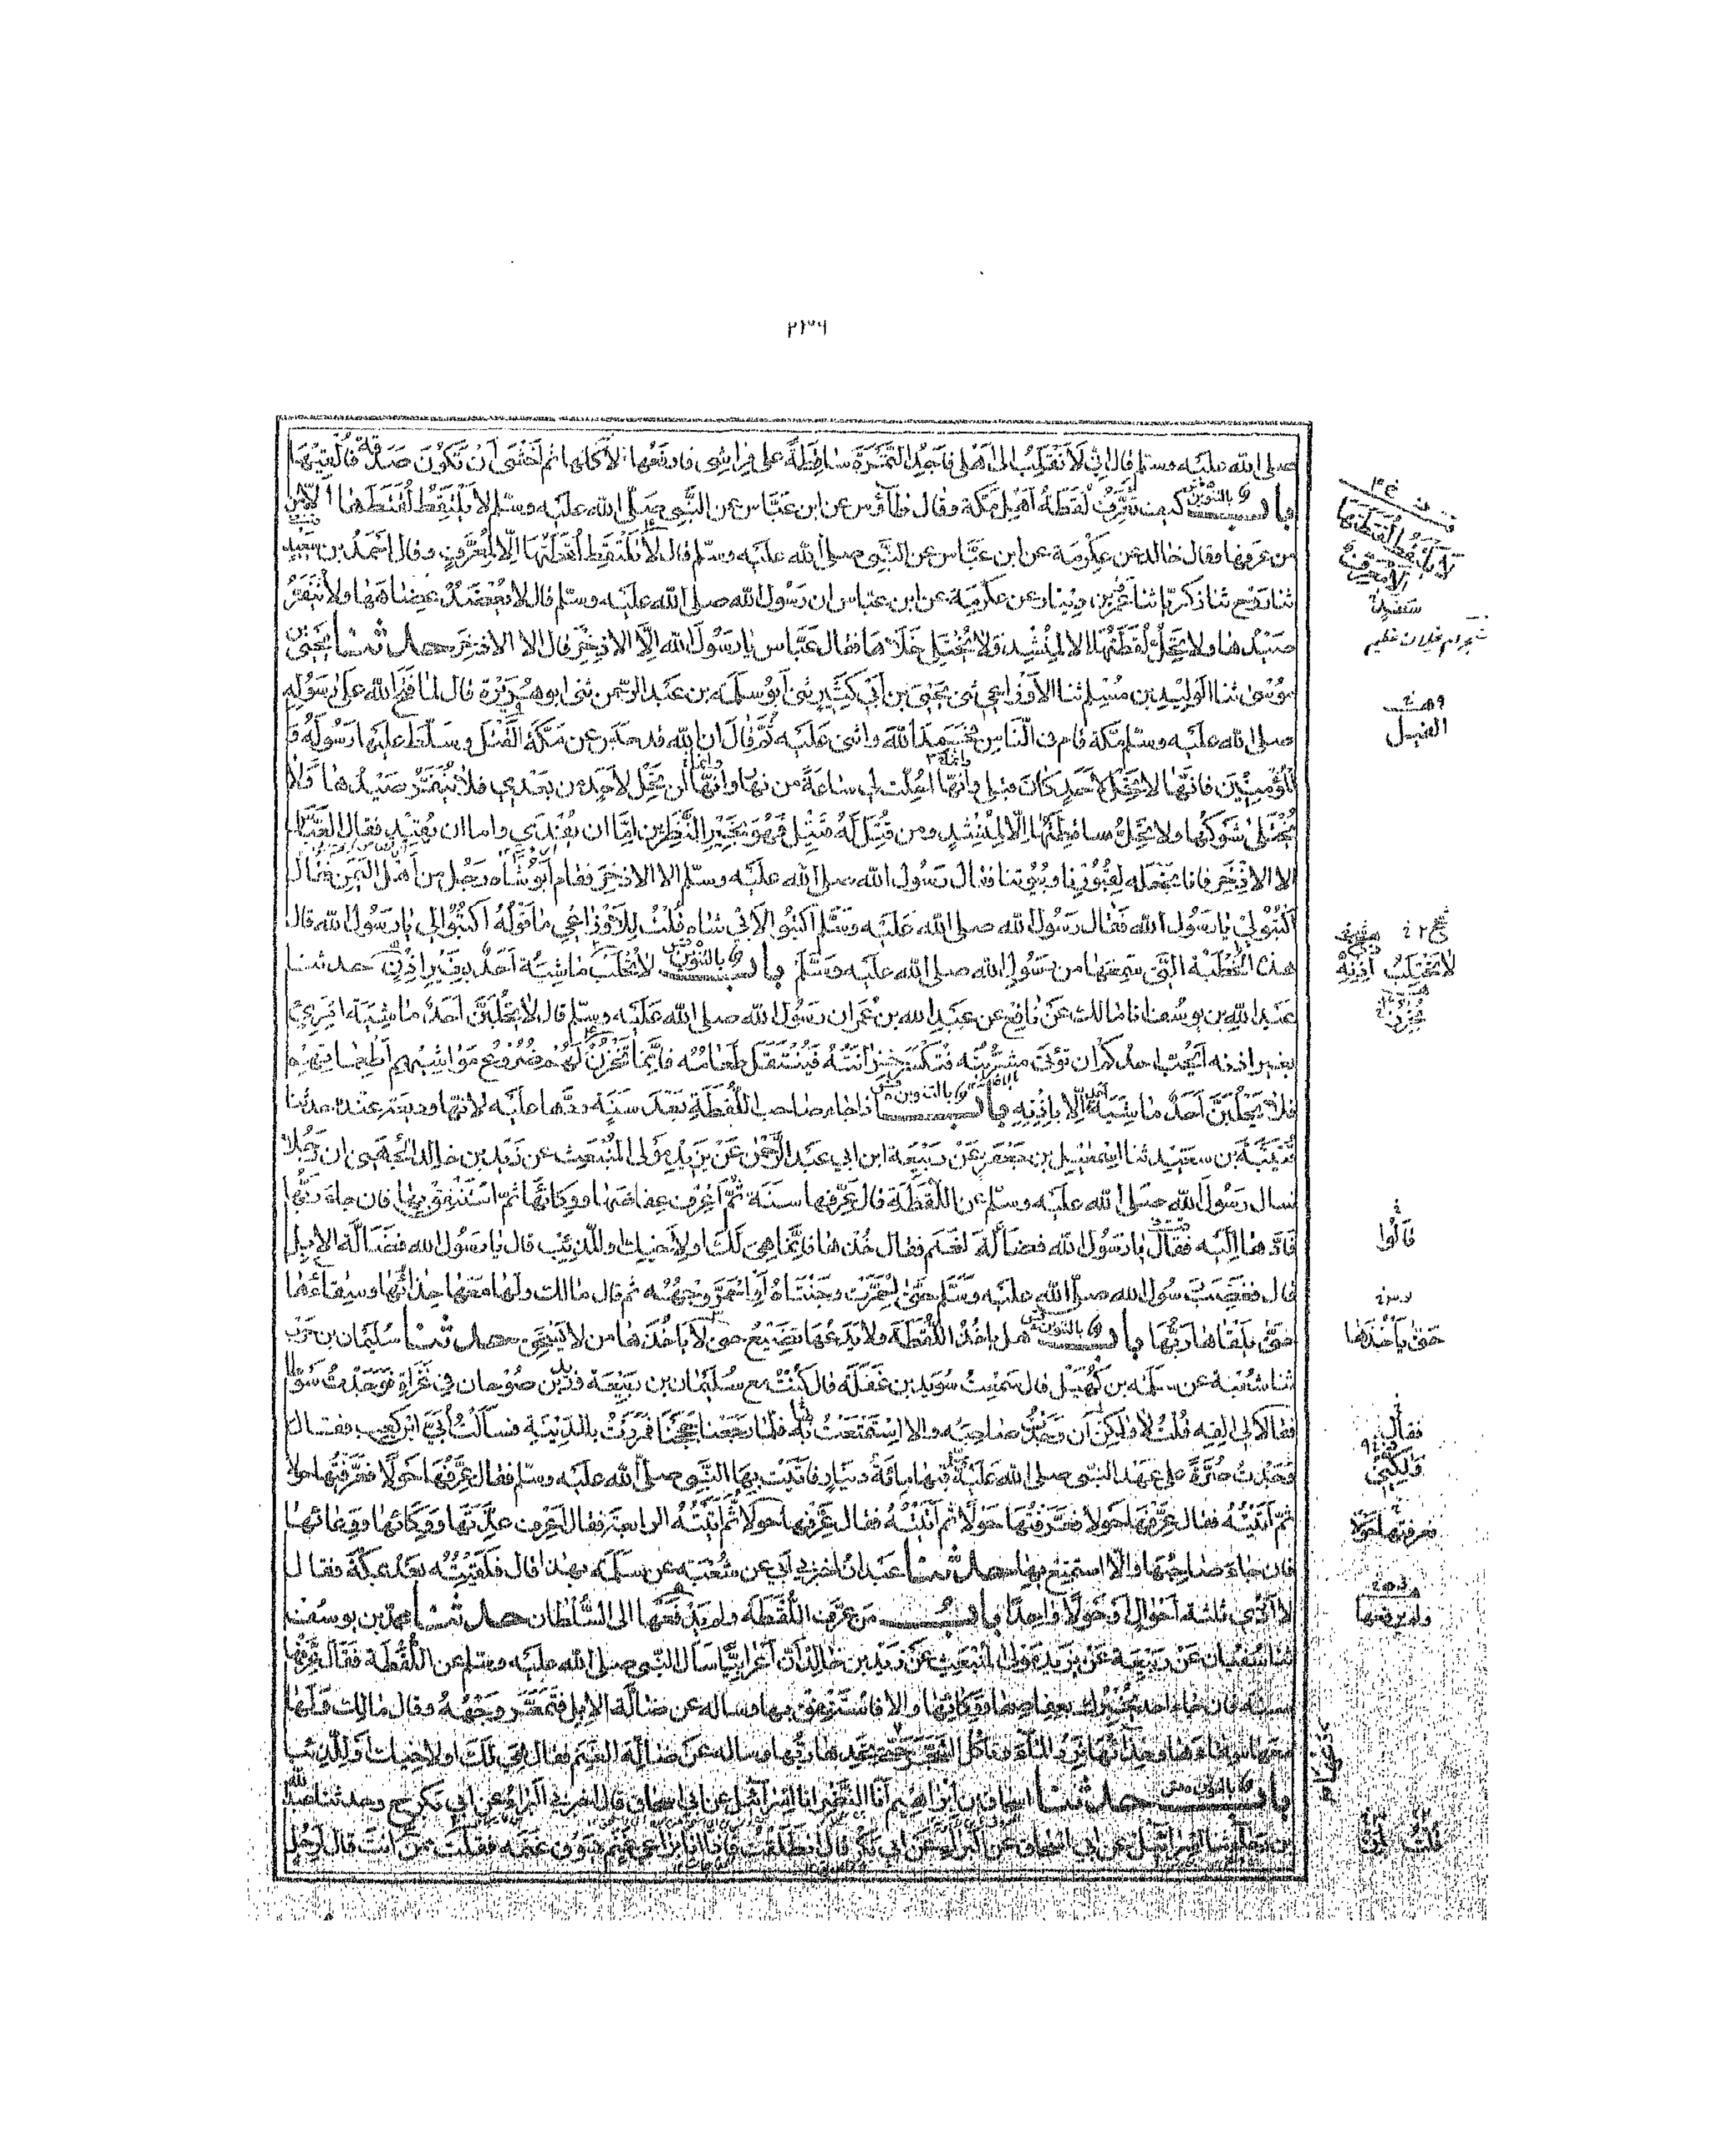 ٢٣٦
صلى الله عليه وسلم قال اني لانقلب الى اهلي فاجد التمرة ساقطة على فراشي فارفعها لآكلها ثم اخشى ان تكون صدقة فالقيها
باب كيف تعرف لقطة اهل مكة وقال طاؤس عن ابن عباس عن النبي صلى الله عليه وسلم لا يلتقط لقطتها الا من
من عرفها وقال خالد عن عكرمة عن ابن عباس عن النبي صلى الله عليه وسلم قال لا تلتقط لقطتها الا لمعرف وقال احمد بن سعيد
ثنا روح ثنا زكريا ثنا عمرو بن دينار عن عكرمة عن ابن عباس ان رسول الله صلى الله عليه وسلم قال لا يعضد عضاهها ولا ينفر
صيدها ولا تحل لقطتها الا لمنشد ولا يختلى خلاها فقال عباس يا رسول الله الا الاذخر قال الا الاذخر حدثنا يحيى بن
موسى ثنا الوليد بن مسلم ثنا الاوزاعي ثنى يحيى بن ابي كثير ثنى ابو سلمة بن عبد الرحمن ثنى ابو هريرة قال لما فتح الله على رسوله
صلى الله عليه وسلم مكة قام في الناس فحمد الله واثنى عليه ثم قال ان الله قد حبس عن مكة القتل وسلط عليها رسوله و
المؤمنين فانها لا تحل لاحد كان قبلي وانها احلت لي ساعة من نهار وانها لن تحل لاحد من بعدي فلا ينفر صيدها ولا
يختلى شوكها ولا تحل ساقطتها الا لمنشد ومن قتل له قتيل فهو بخير النظرين اما ان يفدي واما ان يقيد فقال العباس
الا الاذخر فانا نجعله لقبورنا وبيوتنا فقال رسول الله صلى الله عليه وسلم الا الاذخر فقام ابو شاه رجل من اهل اليمن فقال
اكتبوا لي يا رسول الله فقال رسول الله صلى الله عليه وسلم اكتبوا لابي شاه قلت للاوزاعي ما قوله اكتبوا لي يا رسول الله قال
هذه الخطبة التي سمعها من رسول الله صلى الله عليه وسلم باب لا تحلب ماشية احد بغير اذن حدثنا
عبد الله بن يوسف انا مالك عن نافع عن عبد الله بن عمر ان رسول الله صلى الله عليه وسلم قال لا يحلبن احد ماشية امرئ
بغير اذنه ايحب احدكم ان تؤتى مشربته فتكسر خزانته فينتقل طعامه فانما تخزن لهم ضروع مواشيهم اطعماتهم
فلا يحلبن احد ماشية احد الا باذنه باب اذا جاء صاحب اللقطة بعد سنة ردها عليه لانها وديعة عنده حدثنا
قتيبة بن سعيد ثنا اسمعيل بن جعفر عن ربيعة ابن ابي عبد الرحمن عن يزيد مولى المنبعث عن زيد بن خالد الجهني ان رجلا
سال رسول الله صلى الله عليه وسلم عن اللقطة قال عرفها سنة ثم اعرف عفاصها ووكائها ثم استنفق بها فان جاء ربها
فادها اليه فقال يا رسول الله فضالة الغنم فقال خذها فانما هي لك او لاخيك او للذئب قال يا رسول الله فضالة الابل
قال فغضب رسول الله صلى الله عليه وسلم حتى احمرت وجنتاه او احمر وجهه ثم قال مالك ولها معها حذائها وسقاءها
حتى يلقاها ربها باب هل ياخذ اللقطة ولا يدعها تضيع حتى لا ياخذها من لا يستحق حدثنا سليمان بن حرب
ثنا شعبة عن سلمة بن كهيل قال سمعت سويد بن غفلة قال كنت مع سليمان بن ربيعة وزيد بن صوحان في غزاة فوجدت سوطا
فقالا لي القه قلت لا ولكن ان وجدت صاحبه والا استمتعت به فلما رجعنا حججنا فمررت بالمدينة فسالت ابي ابن كعب فقال
وجدت صرة على عهد النبي صلى الله عليه فيها مائة دينار فاتيت بها النبي صلى الله عليه وسلم فقال عرفها حولا فعرفتها حولا
ثم اتيته فقال عرفها حولا فعرفتها حولا ثم اتيته فقال عرفها حولا ثم اتيته الرابعة فقال اعرف عدتها ووكائها ووعائها
فان جاء صاحبها والا استمتع بها حدثنا عبدان اخبرني ابي عن شعبة عن سلمة بهذا قال فلقيته بعد بمكة فقال
لا ادري ثلثة احوال او حولا واحدا باب من عرف اللقطة ولم يدفعها الى السلطان حدثنا محمد بن يوسف
ثنا سفيان عن ربيعة عن يزيد مولى المنبعث عن زيد بن خالد ان اعرابيا سال النبي صلى الله عليه وسلم عن اللقطة فقال عرفها
سنة فان جاء احد يخبرك بعفاصها ووكائها والا فاستنفق بها وساله عن ضالة الابل فتمعر وجهه وقال مالك ولها
معها سقاءها وحذائها ترد الماء وتاكل الشجر دعها حتى يجدها ربها وساله عن ضالة الغنم فقال هي لك او لاخيك او للذئب
باب حدثنا اسحاق بن ابراهيم انا النضر انا اسرائيل عن ابي اسحاق قال اخبرني البراء عن ابي بكر ح وحدثنا عبد الله
بن رجاء ثنا اسرائيل عن ابي اسحاق عن البراء عن ابي بكر قال انطلقت فاذا انا براعي غنم يسوق غنمه فقلت ممن انت قال لرجل
لا يلتقط لقطتها
الا معرف
القتيل
لا تحتلب اذنه
قالوا
حتى ياخذها
فقال
ولكني
فعرفتها حولا
ولم يرفعها
قلت لمن